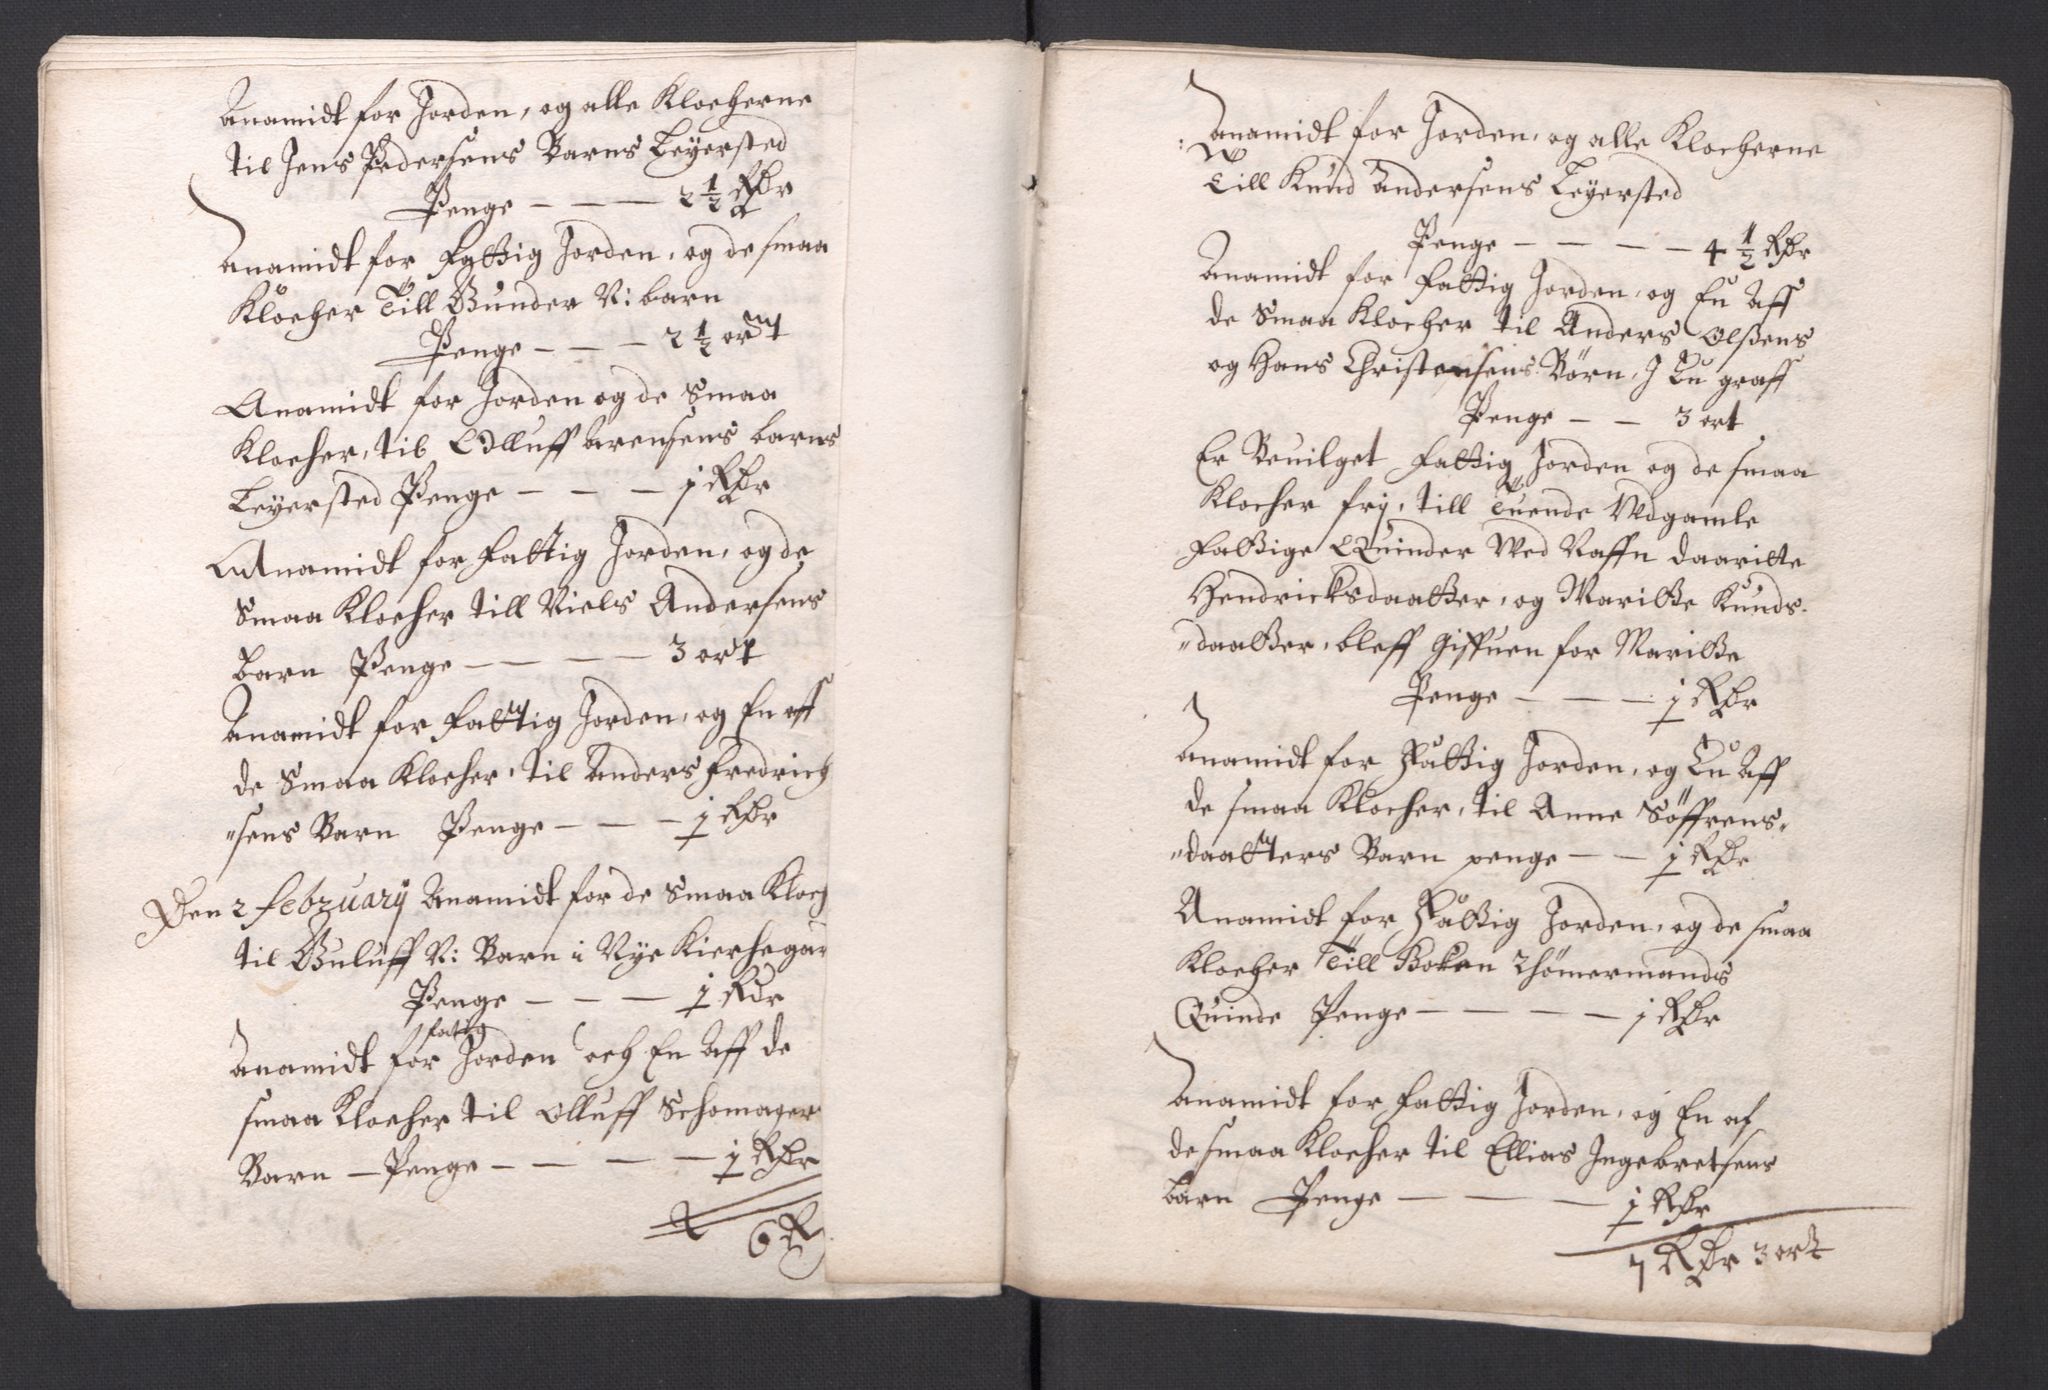 Anamidt for Jorden, og alle Klocherne
til Jens Pedersens Barns Leyersted
Penge - - - 2 ½ RDr
Anamidt for Fattig Jorden, og de smaa
Klocher Till Gunder N: barn
Penge - - - 2 ½ ort
Anamidt for Jorden og de smaa
Klocher, til Olluff arensens barns
Leyersted Penge - - - 1 RDr
Anamidt for Fattig Jorden, og de
smaa Klocher till Niels Andersens
barn Penge - - - - 3 ort
Anamidt for Fattig Jorden, og En aff
de smaa Klocher, til Anders fredrich
"sens Barn Penge - - - 1 RDr
Den 2 february Anamidt for de smaa Kloch
til Guluff N: Barn i Nye Kierhegar
Penge - - - 1 RDr
fatig
Anamidt for Jorden och En Aff de
smaa Klocher til Olluff Schomager
Barn - Penge - - - - 1 RDr
6 R
Anamidt for Jorden, og alle Klocherne
Till Knud Andersens Leyersted
Penge - - - - 4 ½ RDr
Anamidt for Fattig Jorden, og En Aff
de smaa Klocher til Anders Olßens
og Hans Christensens Börn, J En graff
Penge - - 3 ort
Er Beuilget Fattig Jorden og de smaa
Klocher frij, till Tuende Udgamle
Fattige Quinder Wed Naffn daaritte
Hendricksdaatter, og Maritte Knuds-
"daatter, bleff Giffuen for Maritte
Penge - - - 1 RDr
Anamidt for Fattig Jorden, og En Aff
de smaa Klocher, til Anne Söffrens"
"daatters Barn penge - - 1 RDr
Anamidt for Fattig Jorden, og de smaa
Klocher Till Boken Thömermands
Quinde Penge - - - - 1 RDr
Anamidt for Fattig Jorden, og En af
de smaa Klocher til Ellias Ingebretsens
barn Penge - - - 1 RDr
7 RDr 3 ort